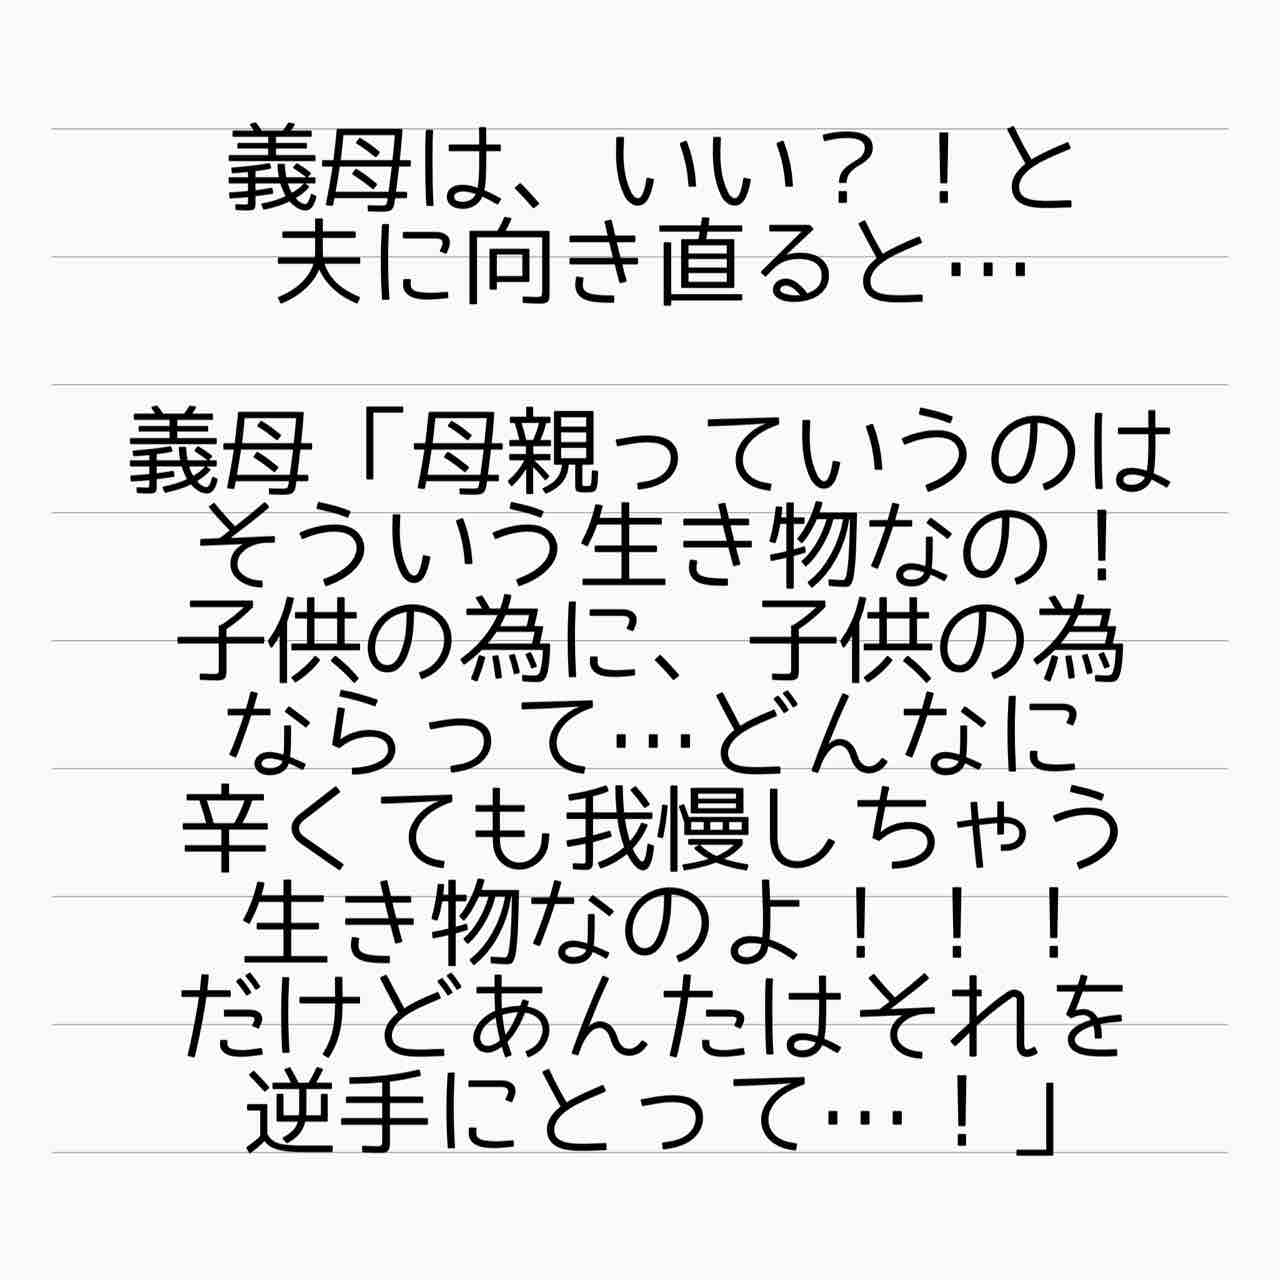 義母は、いい？！と
夫に向き直ると…
義母「母親っていうのは
そういう生き物なの！
子供の為に、子供の為
ならって…どんなに
辛くても我慢しちゃう
生き物なのよ！！！
だけどあんたはそれを
逆手にとって…！」